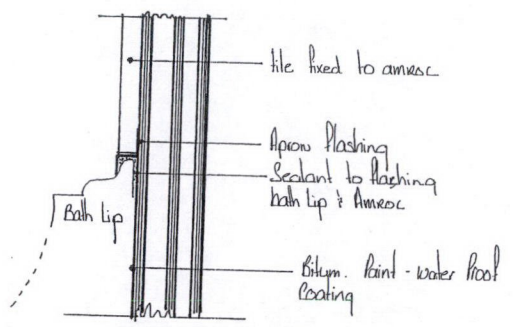 tile fixed to amroc
Apron flashing
Sealant to flashing
bath lip & Amroc
Bath lip
Bitum. Paint - water Proof
Coating